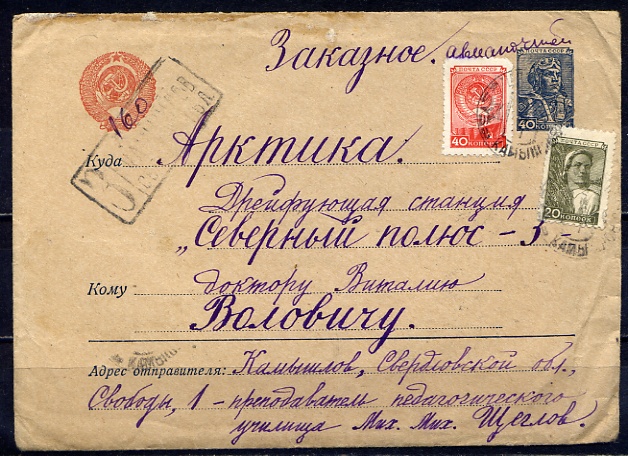 Заказное. авиапочтой
ПОЧТА СССР
40 КОПЕЕК
ПОЧТА СССР
40 КОПЕЕК
160
З
Куда Арктика.
ПОЧТА СССР
20 КОПЕЕК
Дрейфующая станция
„Северный полюс - 3"-
Кому доктору Виталию
Воловичу.
Адрес отправителя: Камышлов, Свердловской обл.,
Свободы, 1 - преподаватель педагогического
училища Мих. Мих. Щеглов.